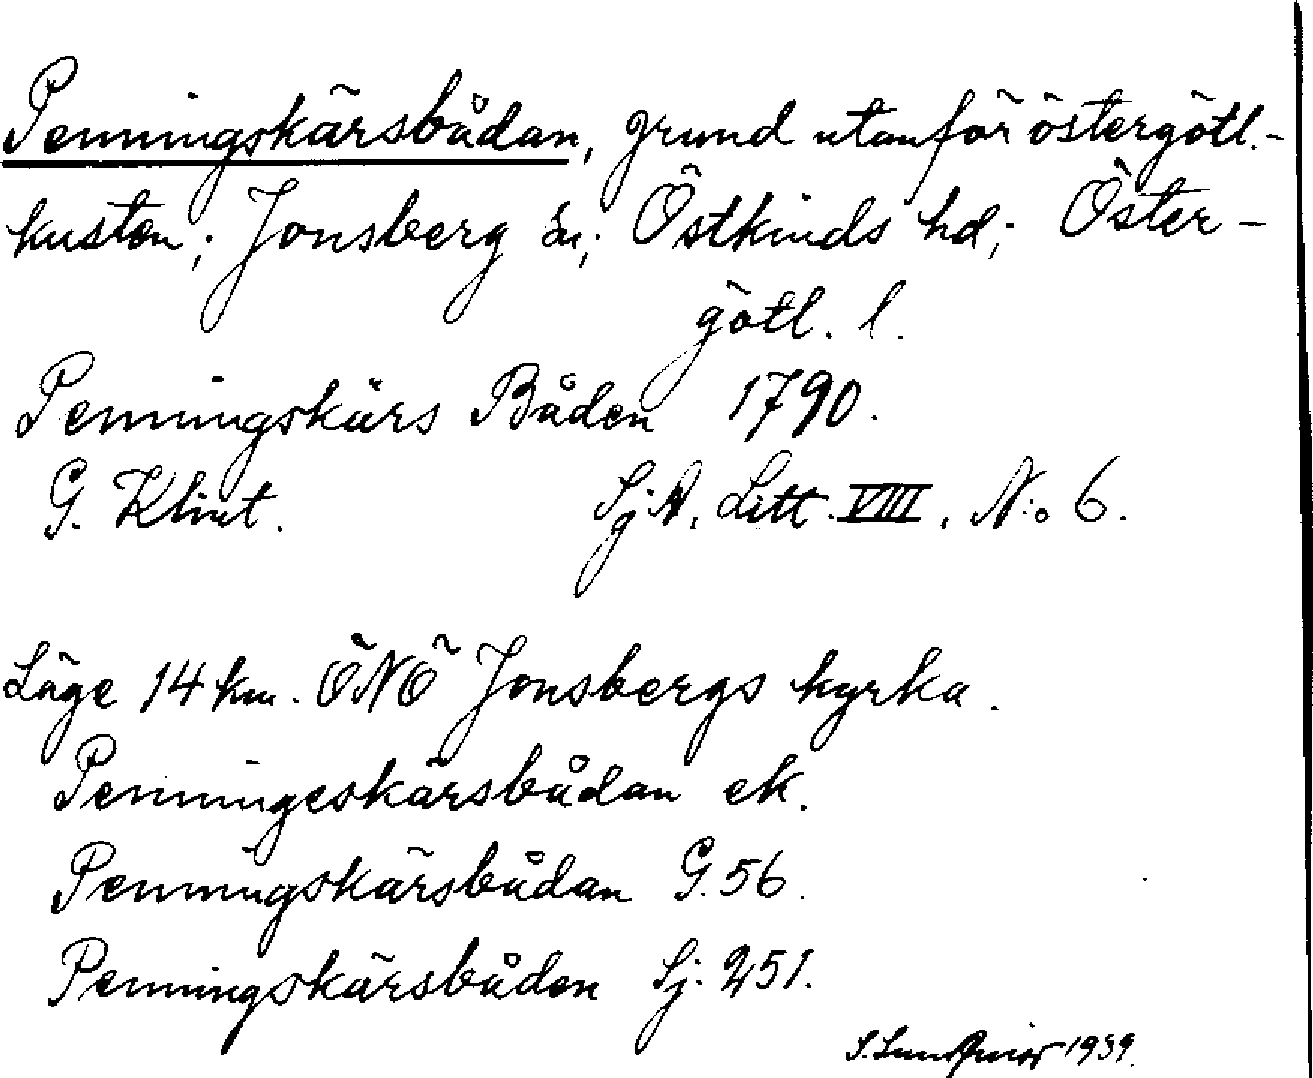 Penningskärsbådan, grund utanför östergötl.-
kusten; Jonsberg sn; Östkinds hd; Öster-
götl. l.
Penningskärs Båden 1790.
G. Klint. Sj.A. Litt. VIII. N:o 6.
Läge 14 km. ÖNÖ Jonsbergs kyrka.
Penningeskärsbådan ek.
Penningskärsbådan G. 56.
Penningskärsbåden Sj. 251.
S. 1939.